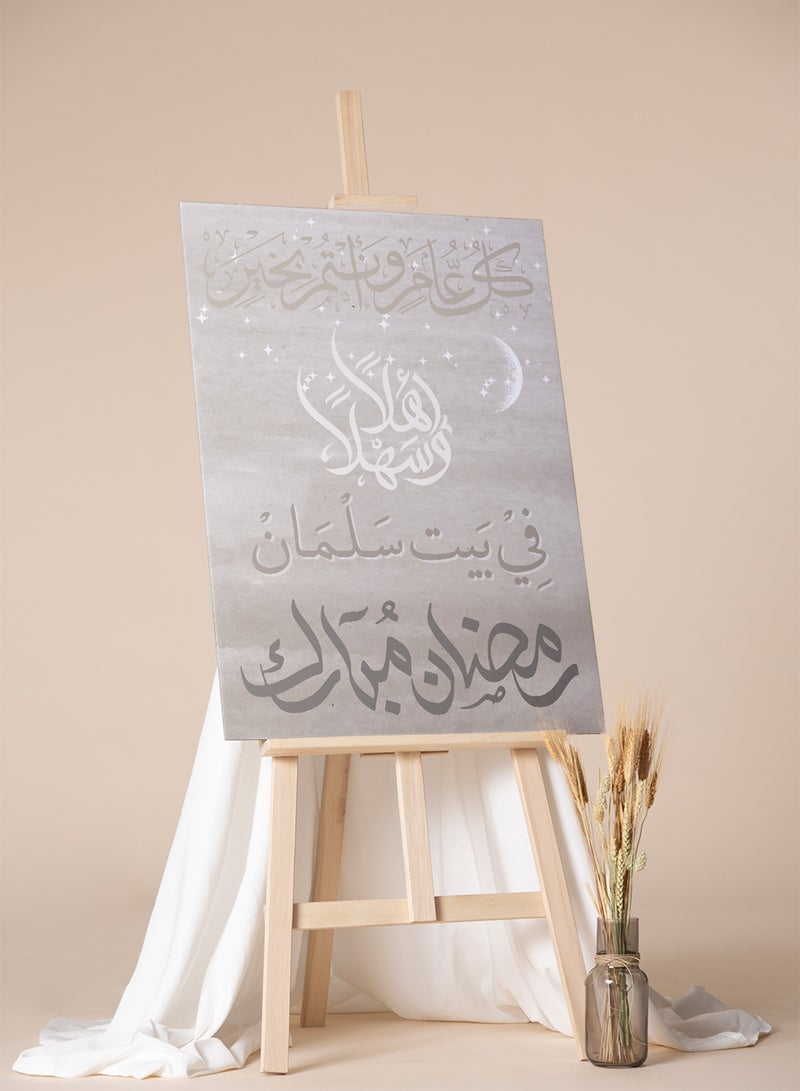 كُلُّ عَامٍ وَأَنْتُمْ بِخَيْرٍ
أهلاً
وسهلاً
فِيْ بَيت سَلْمَانْ
رمضان مُبارك